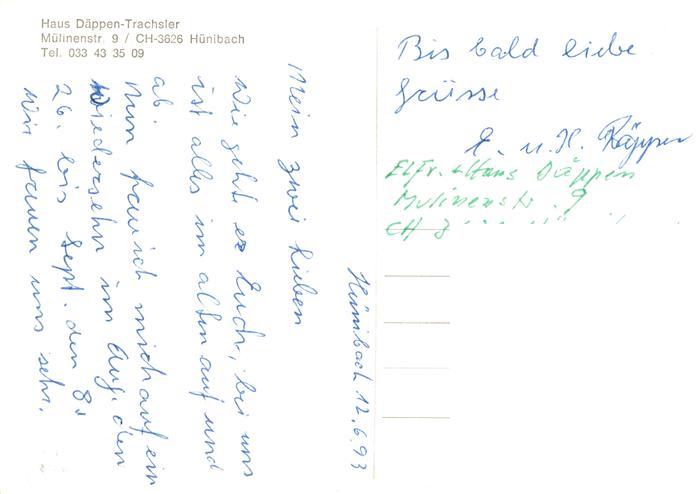 Haus Däppen-Trachsler
Mülinenstr. 9 / CH-3626 Hünibach
Tel. 033 43 35 09
Hünibach 12.6.93
Mein zwei lieben
Wie geht es Euch, bei uns
ist alles im alten auf und
ab.
Nun freu ich mich auf ein
Wiedersehn im Aug. den
26. bis Sept. den 8.
Wir freuen uns sehr.
Bis bald liebe
Grüsse
E. u. H. Däppen
Elfr. + Hans Däppen
Mulinenstr. 9
CH 3